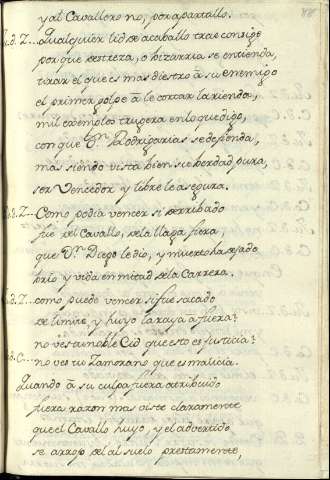 y al Cavallero no, por apartallo.
R.d.Z.. Qualquier lid de acaballo trae consigo
por que destreza, o bizarria se entienda,
tirar el que es mas diestro a su enemigo
el primer golpe a le cortar la rienda,
mil exemplos trugera en lo que digo,
con que Dn. Rodrigarias se defienda,
mas siendo vista bien su verdad pura,
ser Vencedor y libre le asegura.
Como podia vencer si derribado
fue del Cavallo, de la llaga fiera
que Dn. Diego le dio, y muerto ha dejado
brio y vida en mitad de la Carrera.
como puedo vencer si fue sacado
de limite, y huyo la raya a fuera?
no ves tu noble Cid que esto es justicia?
no ves tu Zamorano que es malicia.
Quando a su culpa fuera atribuido
fuera razon mas oiste claramente
que el Cavallo huyo, y el advertido
se arrojo del al suelo prestamente,